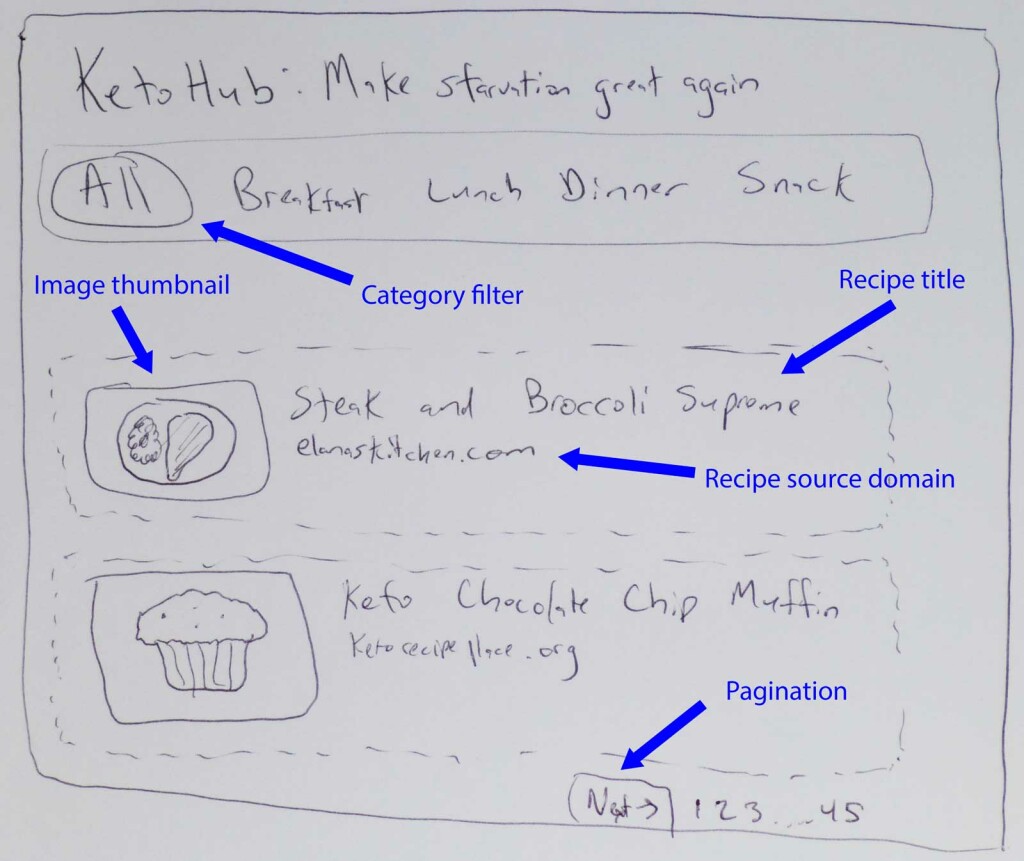 KetoHub: Make starvation great again
All Breakfast Lunch Dinner Snack
Image thumbnail
Category filter
Recipe title
Steak and Broccoli Supreme
elanaskitchen.com
Recipe source domain
Keto Chocolate Chip Muffin
ketorecipeplace.org
Pagination
Next→ 1 2 3 .... 45